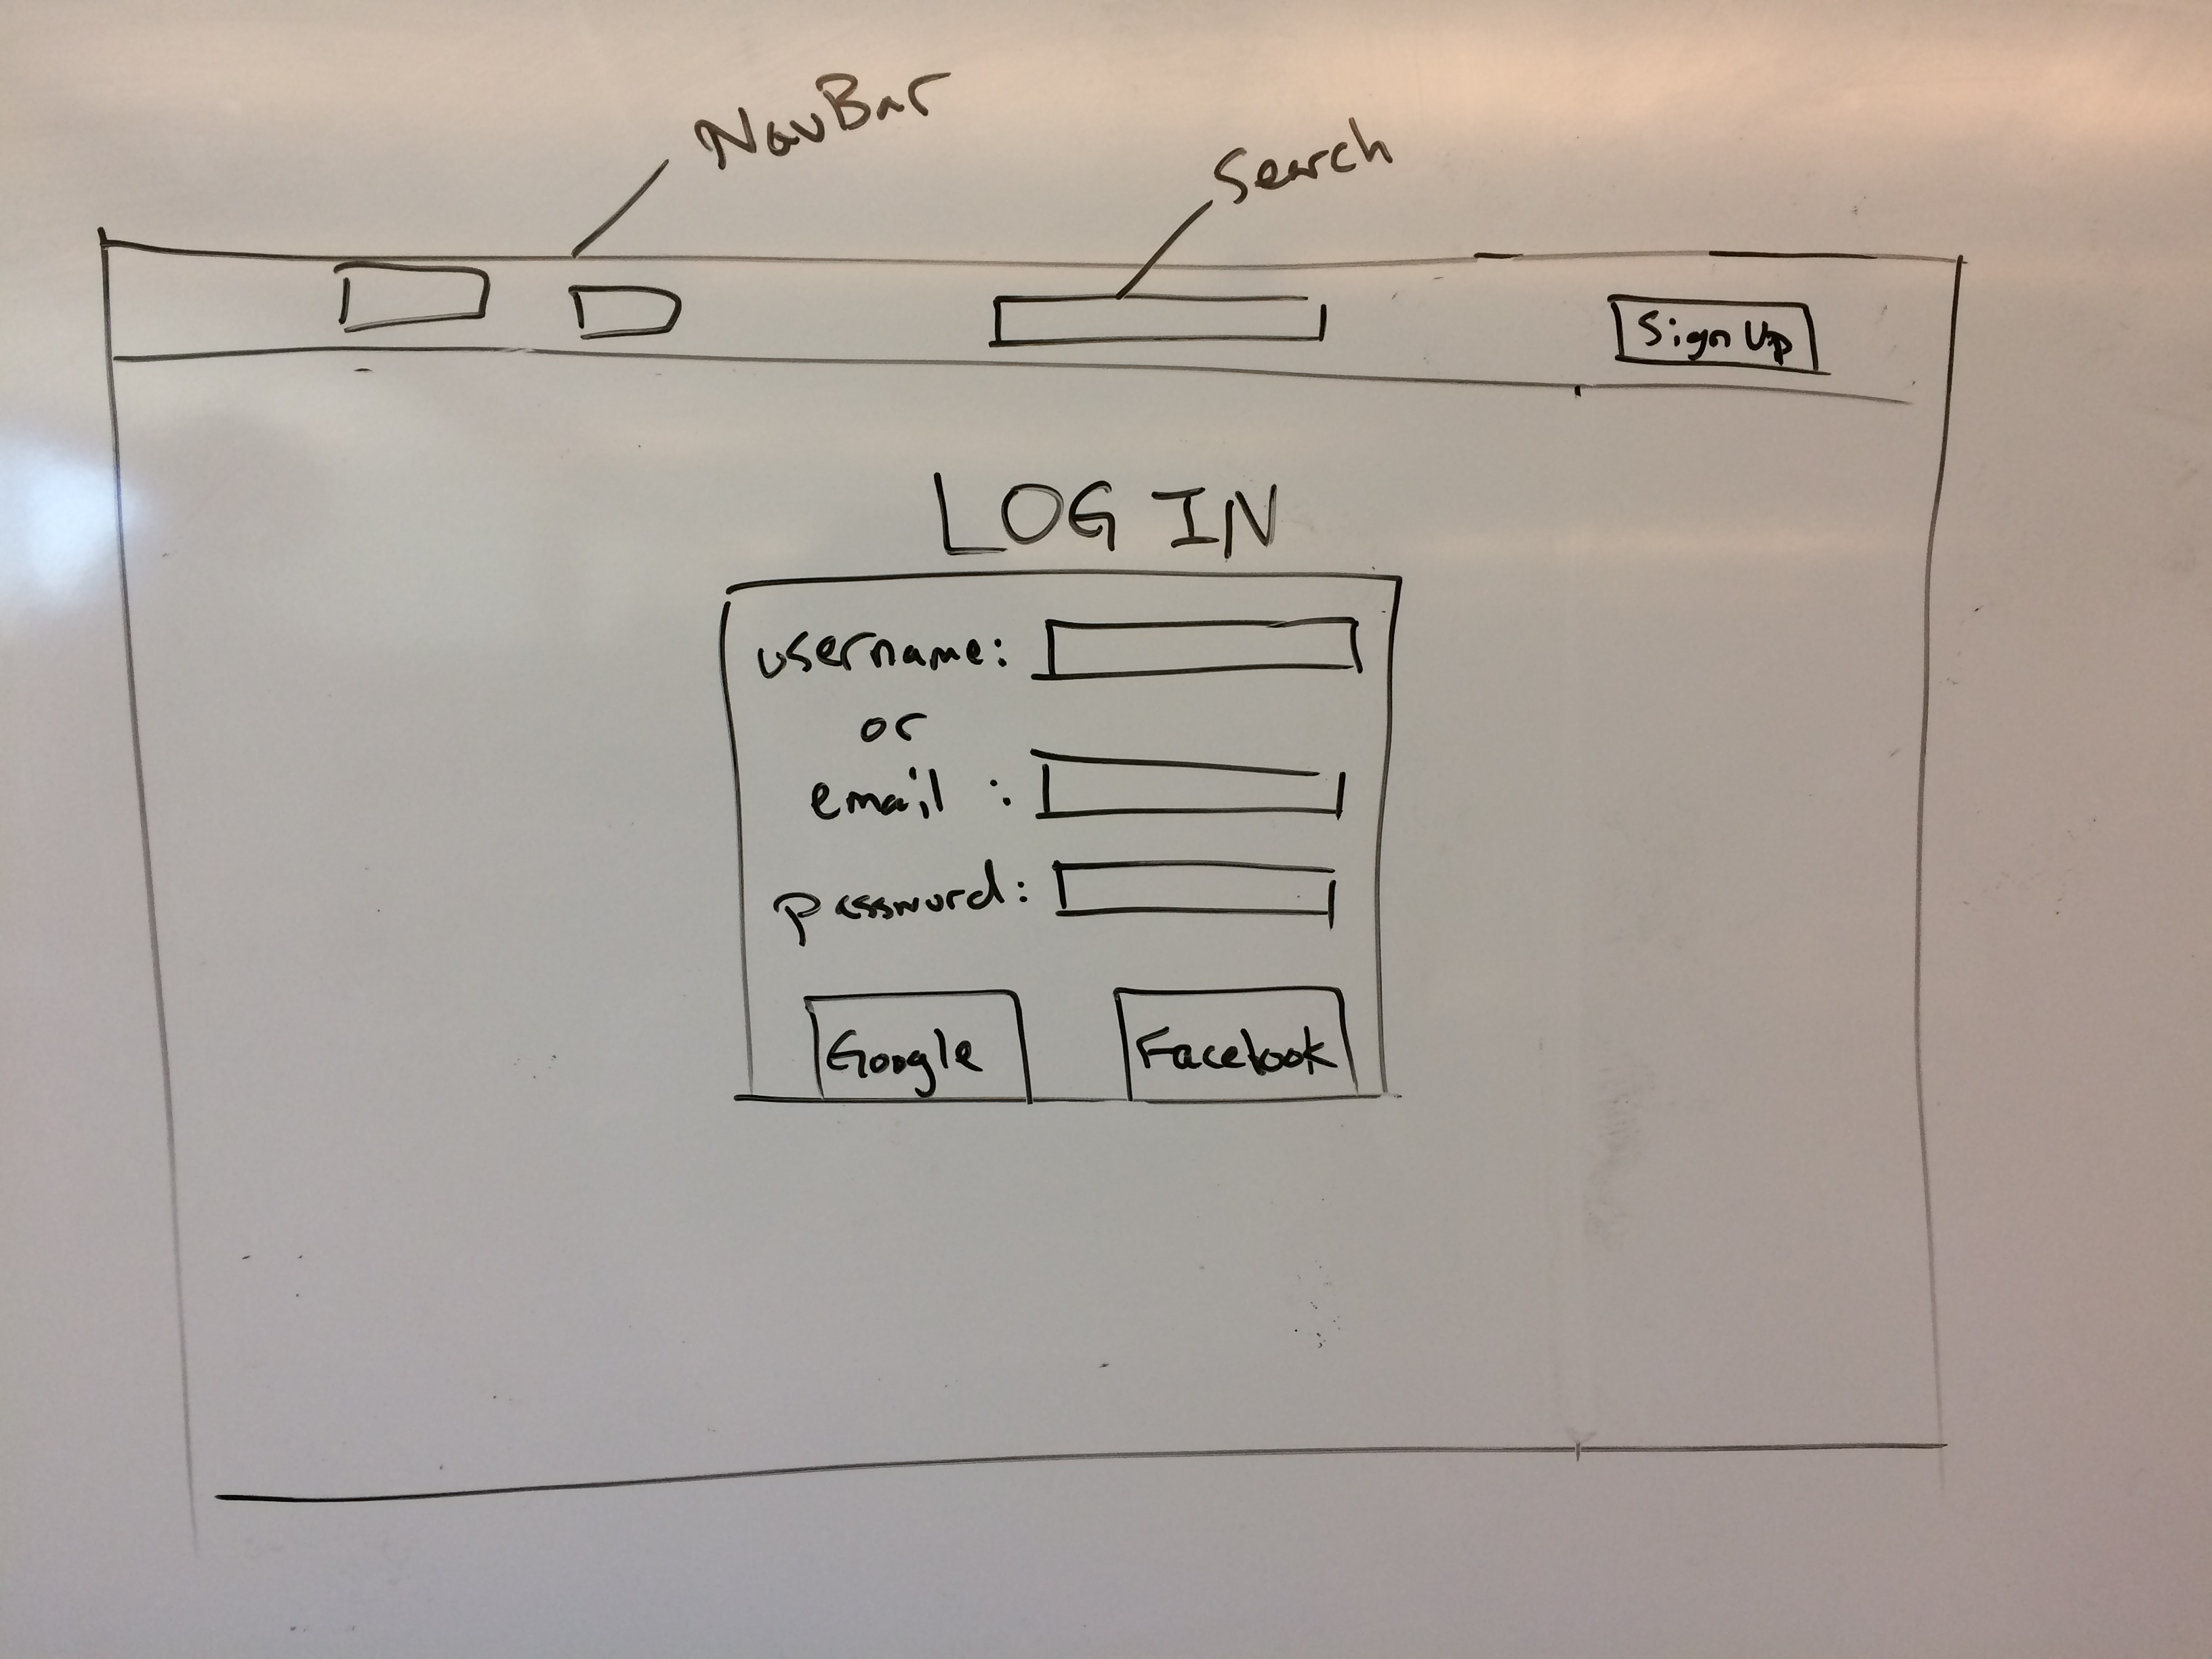 NavBar
Search
Sign Up
LOG IN
username:
or
email :
password:
Google
Facebook